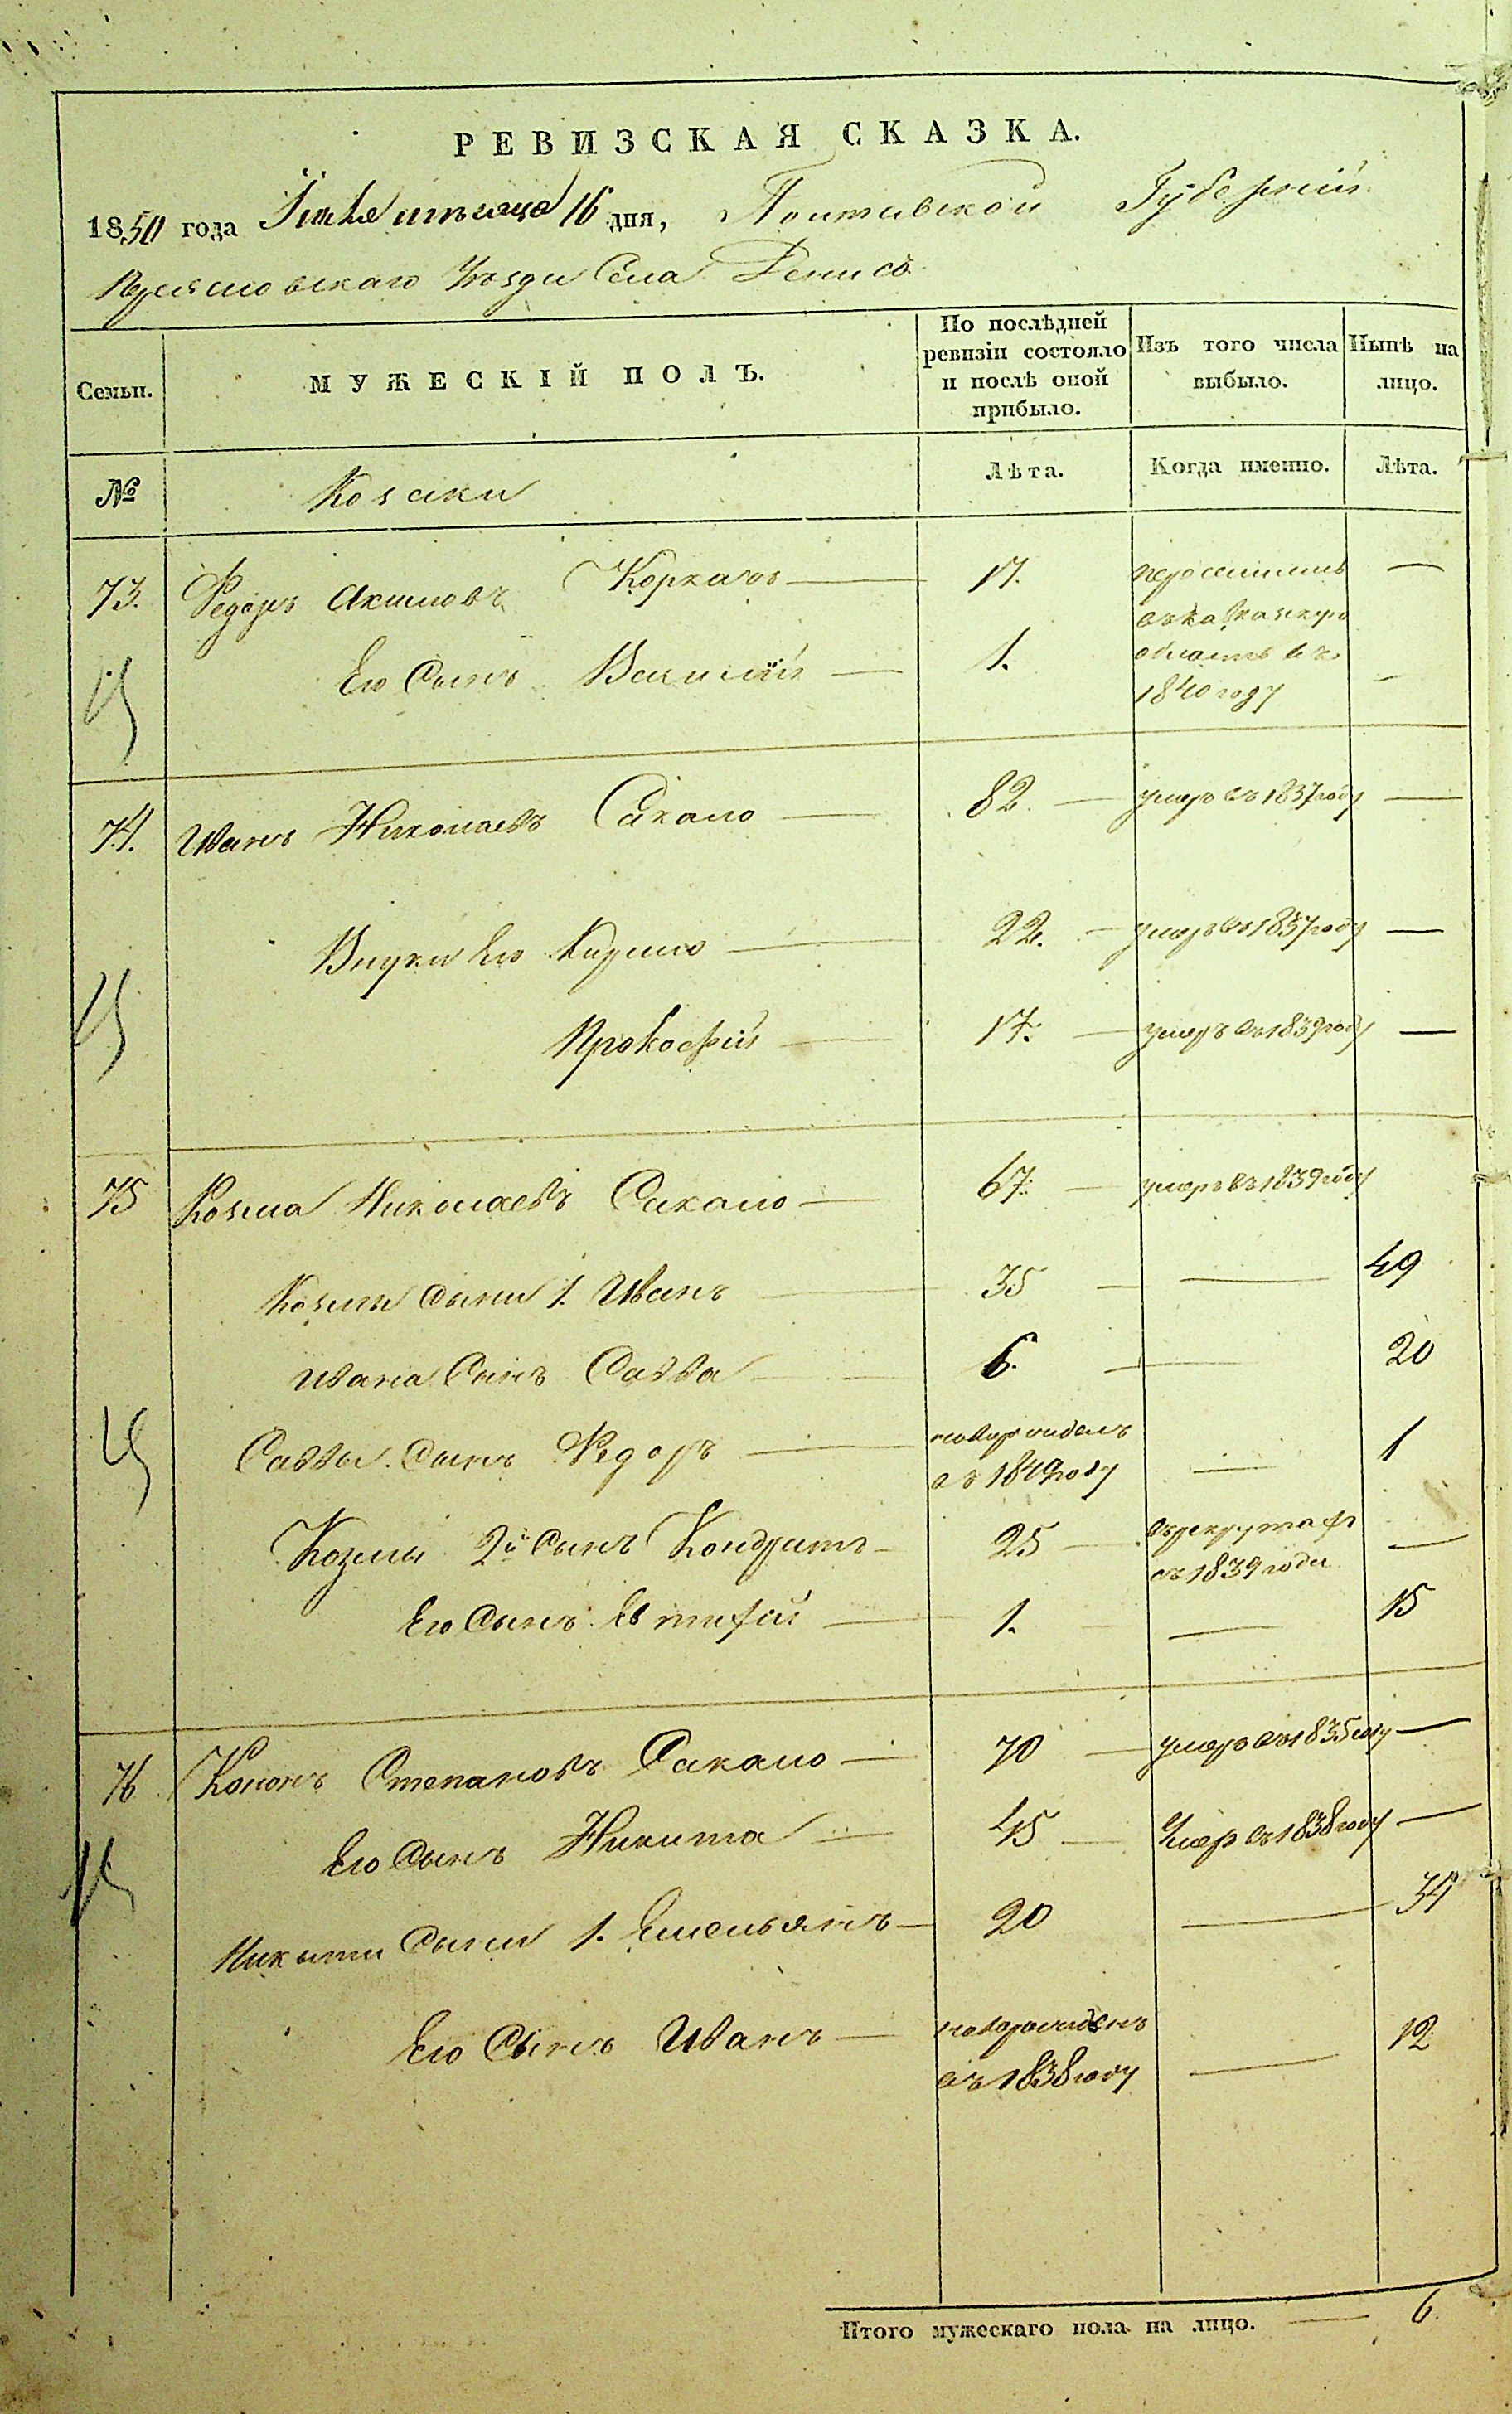 РЕВИЗСКАЯ СКАЗКА.
1850 года мѣсяца 16 дня, Полтавской Губерніи
Переясловскаго Уѣзда Села Денисо
Семьи.
МУЖЕСКІЙ ПОЛЪ.
По послѣдней ревизіи состояло и послѣ оной прибыло.
Изъ того числа выбыло.
Нынѣ на лицо.
№
Козаки
Лѣта.
Когда именно.
Лѣта.
73. Федоръ Акимовъ 17. переселились —
въ Кавказкую
Его Сынъ Василій 1. область въ —
1840 году
74. Иванъ Николаевъ Сакало 82. умеръ въ 1837 году —
Внуки Его Кирило 22. умеръ въ 1837 году —
Прокофій 17. умеръ въ 1839 году —
75 Козма Николаевъ Сакало 67. умеръ въ 1839 году
Козмы Сыны 1. Иванъ 35 — 49
Ивана Сынъ Савва 6. — 20
Саввы Сынъ Федоръ новорожденъ — 1
въ 1849 году
Козмы 2й Сынъ Кондратъ 25 въ рекрутахъ —
съ 1839 года
Его Сынъ Евтифій 1. — 15
76 Кононъ Степановъ Сакало 70 умеръ въ 1835 году —
Его Сынъ Никита 45 Умеръ въ 1838 году —
Никиты Сыны 1. Емельянъ 20 — 34
Его Сынъ Иванъ новорожденъ — 12
въ 1838 году
Итого мужескаго пола на лицо. — 6.